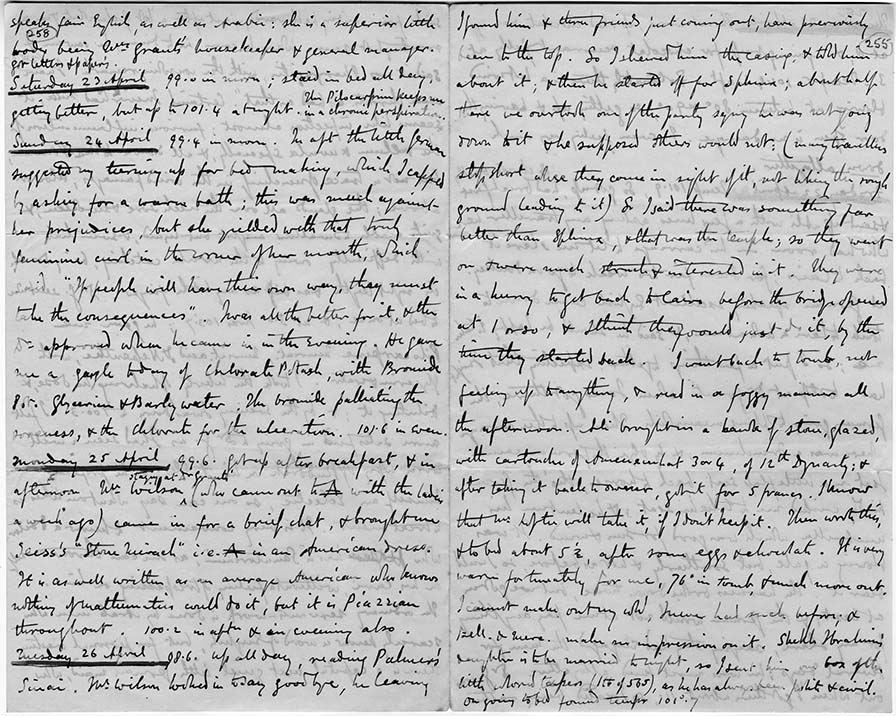 speaks fair English, as well as Arabic: she is a superior little
258
body being Mrs Grant's housekeeper & general manager.
got letters & papers.
Saturday 23 April 99.0 in morn; stayed in bed all day,
getting better, but up to 101.4 at night. The Pilocarpin keeps me
in a chronic perspiration.
Sunday 24 April 99.4 in morn. In aft the little German
suggested my turning up for bed-making, which I capped
by asking for a warm bath; this was much against
her prejudices, but she yielded with that truly
feminine curl in the corner of her mouth, which
said "If people will have their own way, they must
take the consequences". I was all the better for it, & the
Dr approved when he came in in the evening. He gave
me a gargle today of Chlorate Potash, with Bromide
Glycerin & Barley water. The bromide palliating the
soreness, & the chlorate for the ulceration. 101.6 in even.
Monday 25 April 99.6. got up after breakfast, & in
staying at Dr Grant's
afternoon Mr Wilson (who came out to with the ladies
a week ago) came in for a brief chat, & brought me
Seiss's "Stone Miracle" i.e. in an American dress.
It is as well written as an average American who knows
nothing of mathematics could do it, but it is Piazzian
throughout. 100.2 in aftn & in evening also.
Tuesday 26 April 98.6. up all day, reading Palmer's
Sinai. Mr Wilson looked in to say goodbye, he leaving
I found him & three friends just coming out, have previously
255
been to the top. So I shewed him the casing, & told him
about it; & then he started off for Sphinx; about half
there we overtook one of the party saying he was not going
down to it & he supposed others would not: (many travellers
stop short where they come in sight of it, not liking the rough
ground leading to it) So I said there was something far
better than Sphinx, & that was the temple; so they went
on & were much struck & interested in it. They were
in a hurry to get back to Cairo before the bridge opened
at 1 or so, & I think they would just do it, by the
time they started back. I went back to tomb, not
feeling up to anything, & read in a foggy manner all
the afternoon. Ali brought in a bead of stone, glazed,
with cartouche of Amenemhat 3 or 4, of 12th Dynasty; &
after taking it back to owner, got it for 5 francs. I know
that Mr Loftie will take it, if I don't keep it. Then wrote this,
& to bed about 5½, after some eggs & chocolate. It is very
warm fortunately for me, 76° in tomb, & much more out.
I cannot make out my cold, I never had such before. &
bell. & merc. make no impression on it. Shekh Ibrahim's
daughter is to be married tonight, so I sent him box of
little colored tapers (150 of 565), as he has always been polite & civil.
On going to bed found temper 101°.7